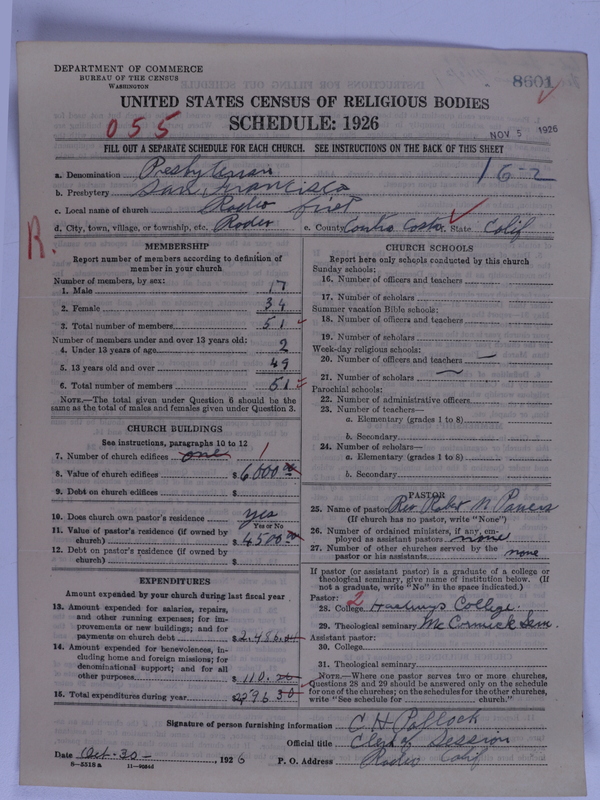 DEPARTMENT OF COMMERCE
BUREAU OF THE CENSUS
WASHINGTON
8601
UNITED STATES CENSUS OF RELIGIOUS BODIES
SCHEDULE: 1926
055
NOV 5 1926
FILL OUT A SEPARATE SCHEDULE FOR EACH CHURCH. SEE INSTRUCTIONS ON THE BACK OF THIS SHEET
a. Denomination Presbyterian
16-2
b. Presbytery San Francisco
c. Local name of church Rodeo first
d. City, town, village, or township, etc. Rodeo e. County Contra Costa, State Calif
R.
MEMBERSHIP
Report number of members according to definition of
member in your church
Number of members, by sex:
1. Male 17
2. Female 34
3. Total number of members 51
Number of members under and over 13 years old:
4. Under 13 years of age 2
5. 13 years old and over 49
6. Total number of members 51
NOTE.—The total given under Question 6 should be the
same as the total of males and females given under Question 3.
CHURCH BUILDINGS
See instructions, paragraphs 10 to 12
7. Number of church edifices one 1
8. Value of church edifices $6000 00
9. Debt on church edifices $
10. Does church own pastor's residence yes
Yes or No
11. Value of pastor's residence (if owned by
church) $4500 00
12. Debt on pastor's residence (if owned by
church) $
EXPENDITURES
Amount expended by your church during last fiscal year
13. Amount expended for salaries, repairs,
and other running expenses; for im-
provements or new buildings; and for
payments on church debt $2,486.
14. Amount expended for benevolences, in-
cluding home and foreign missions; for
denominational support; and for all
other purposes $110.
15. Total expenditures during year 2596 50
CHURCH SCHOOLS
Report here only schools conducted by this church
Sunday schools:
16. Number of officers and teachers
17. Number of scholars
Summer vacation Bible schools:
18. Number of officers and teachers
19. Number of scholars
Week-day religious schools:
20. Number of officers and teachers —
21. Number of scholars —
Parochial schools:
22. Number of administrative officers
23. Number of teachers—
a. Elementary (grades 1 to 8)
b. Secondary
24. Number of scholars—
a. Elementary (grades 1 to 8)
b. Secondary
PASTOR
25. Name of pastor Rev. Robt N Powers
(If church has no pastor, write "None")
26. Number of ordained ministers, if any, em-
ployed as assistant pastors none
27. Number of other churches served by the
pastor or his assistants none
If pastor (or assistant pastor) is a graduate of a college or
theological seminary, give name of institution below. (If
not a graduate, write "No" in the space indicated.)
Pastor: 2
28. College Hastings College
29. Theological seminary McCormick Sem.
Assistant pastor:
30. College
31. Theological seminary
NOTE.—Where one pastor serves two or more churches,
Questions 28 and 29 should be answered only on the schedule
for one of the churches; on the schedules for the other churches,
write "See schedule for church."
Signature of person furnishing information C H Pollock
Official title Clerk of Session
Date Oct-30-, 1926 P. O. Address Rodeo Calif
8-5318a 11-9064d